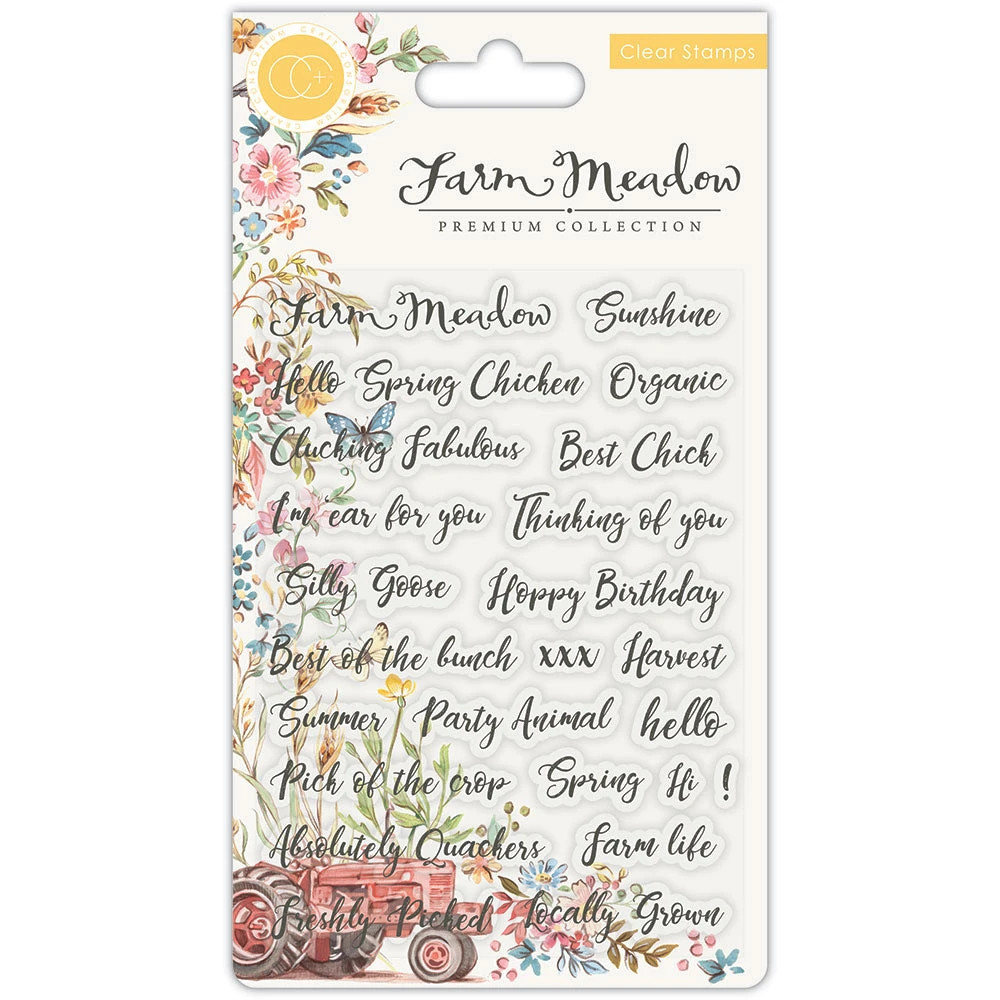 CRAFT CONSORTIUM CRAFT CONSORTIUM
CC+
Clear Stamps
Farm Meadow
PREMIUM COLLECTION
Farm Meadow Sunshine
Hello Spring Chicken Organic
Clucking Fabulous Best Chick
I'm 'ear for you Thinking of you
Silly Goose Hoppy Birthday
Best of the bunch xxx Harvest
Summer Party Animal hello
Pick of the crop Spring Hi !
Absolutely Quackers Farm life
Freshly Picked Locally Grown